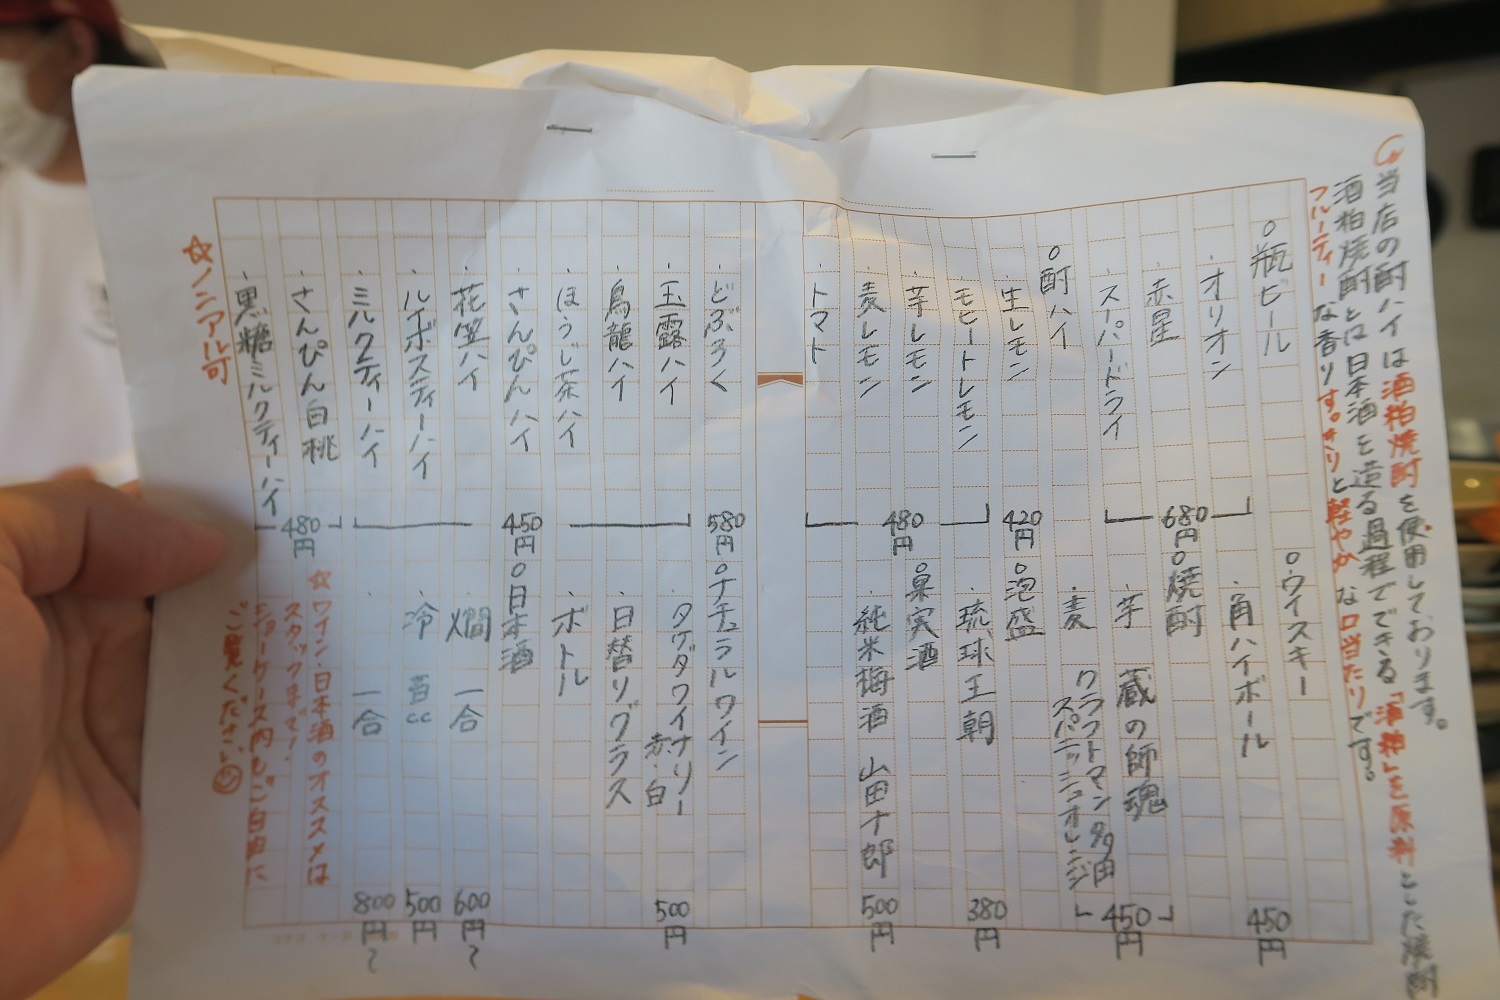 当店の酎ハイは酒粕焼酎を使用しております。
酒粕焼酎とは日本酒を造る過程でできる「酒粕」を原料とした焼酎
フルーティーな香りです。きりっと軽やかな口当たりです。
○瓶ビール
・オリオン
・赤星
・スーパードライ
680円
○酎ハイ
・生レモン
420円
・モヒートレモン
・芋レモン
・麦レモン
・トマト
480円
・どぶろく
580円
・玉露ハイ
・烏龍ハイ
・ほうじ茶ハイ
・さんぴんハイ
・花笠ハイ
・ルイボスティーハイ
・ミルクティーハイ
450円
・さんぴん白桃
・黒糖ミルクティーハイ
480円
☆ノンアル可
○ウイスキー
・角ハイボール
450円
○焼酎
・芋 蔵の師魂
・麦 クラフトマン多田
スパニッシュオレンジ
450円
○泡盛
・琉球王朝
380円
○果実酒
・純米梅酒 山田十郎
500円
○ナチュラルワイン
・タケダワイナリー
赤・白
500円
・日替りグラス
・ボトル
○日本酒
・燗 一合
600円~
・冷 百cc
500円
・一合
800円~
☆ワイン・日本酒のオススメは
スタッフまで!
ショーケース内もご自由に
ご覧ください